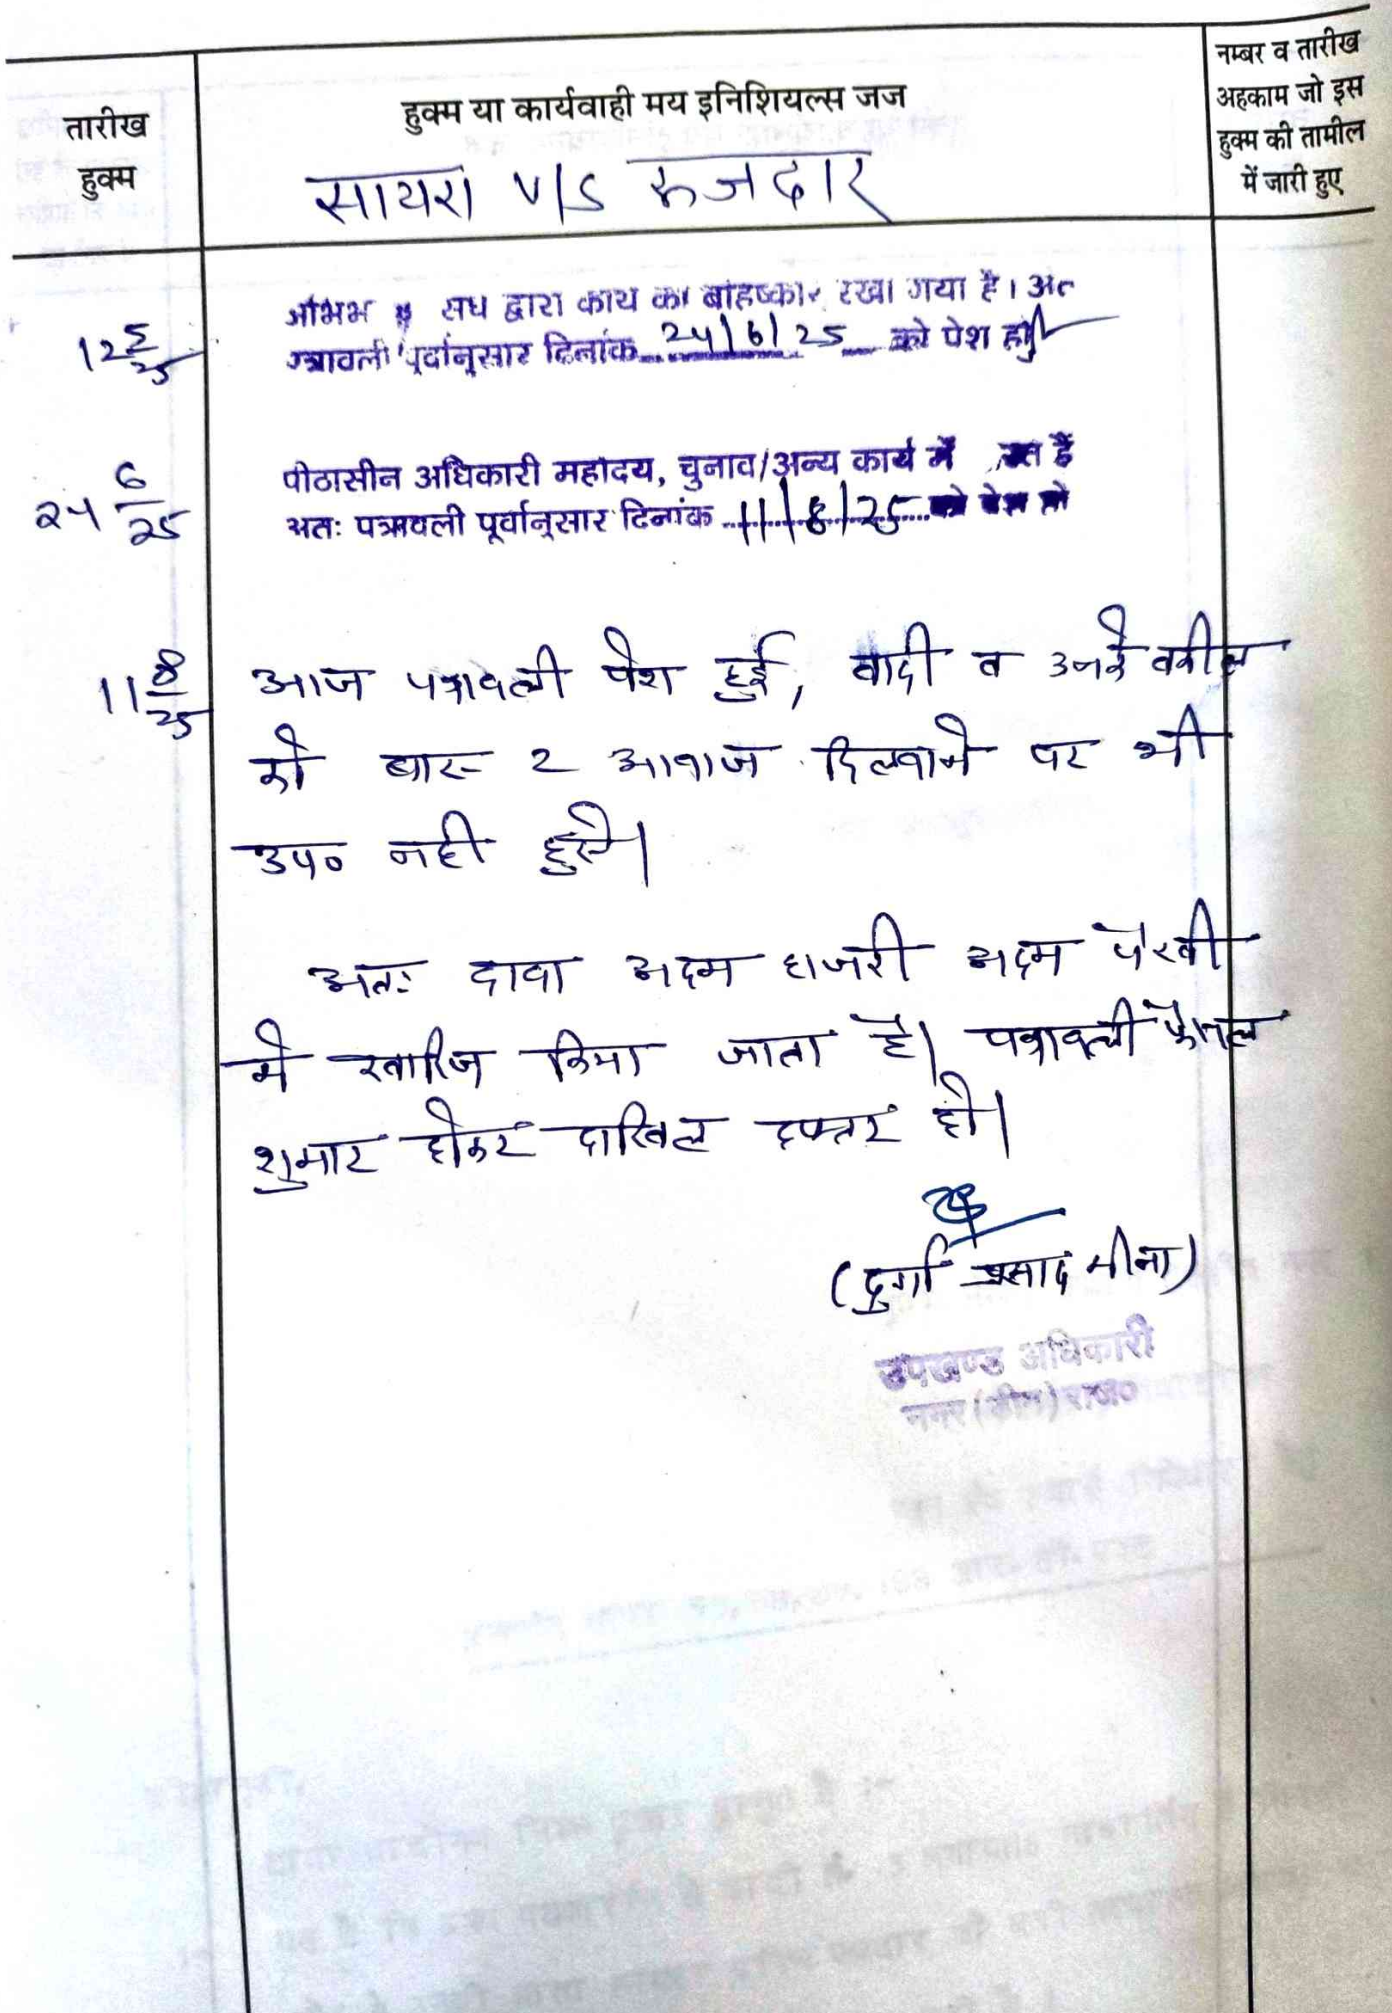 तारीख
हुक्म
हुक्म या कार्यवाही मय इनिशियल्स जज
नम्बर व तारीख
अहकाम जो इस
हुक्म की तामील
में जारी हुए
सायरा v/s रुजदार
12 5/25
संघ द्वारा कार्य का बहिष्कार रखा गया है। अत
पत्रावली पूर्वानुसार दिनांक 24/6/25 को पेश हो
24 6/25
पीठासीन अधिकारी महोदय, चुनाव/अन्य कार्य में रत है
अतः पत्रावली पूर्वानुसार दिनांक 11/8/25 को पेश हो
11 8/25
आज पत्रावली पेश हुई, वादी व उनके वकील
को बार 2 आवाज दिलवाने पर भी
उप० नही हुये।
अतः दावा अदम हाजरी अदम पैरवी
मे खारिज किया जाता है। पत्रावली फैसल
शुमार होकर दाखिल दफ्तर हो।
(दुर्गा प्रसाद मीना)
उपखण्ड अधिकारी
नगर (डीग) राज०